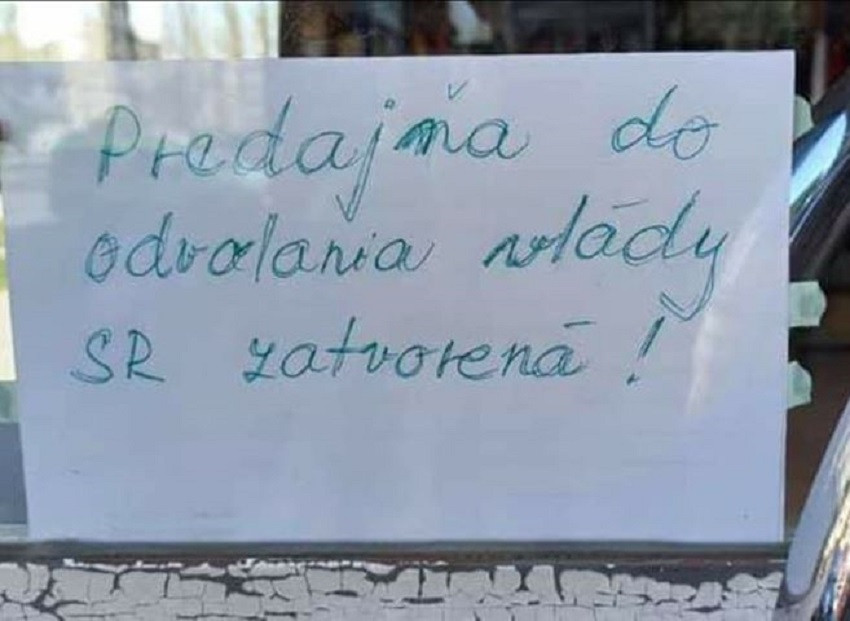 Predajňa do
odvolania vlády
SR zatvorená!